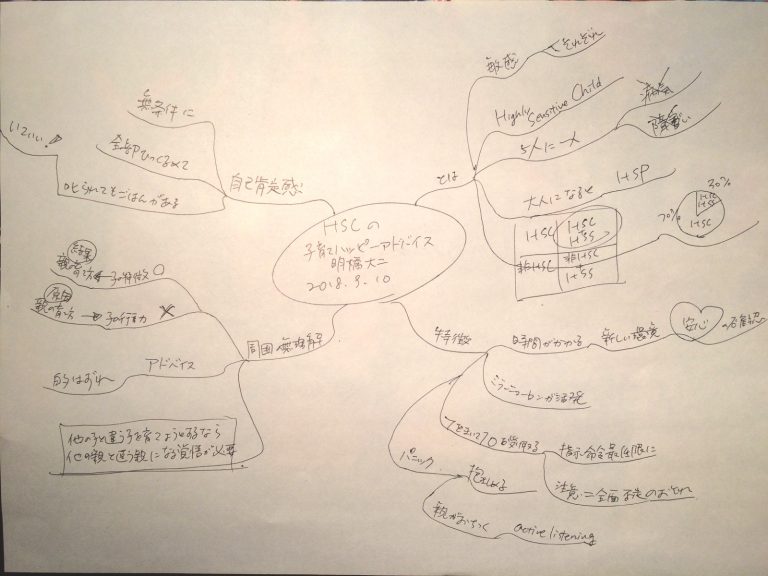 HSCの
子育てハッピーアドバイス
明橋大二
2018.9.10
とは
敏感
それぞれ
Highly
Sensitive Child
5人に一人
病気
障害
大人になると
HSP
HSC
HSC
+
HSS
非HSC
非HSC
+
HSS
30%
70%
HSC
HSS
HSC
特徴
時間がかかる
新しい環境
安心
の確認
ミラーニューロンが活発
1を聞いて10を受取る
指示命令最低限に
注意=全面否定のおそれ
パニック
抱きしめる
親がおちつく
active listening
自己肯定感
無条件に
全部ひっくるめて
叱られてもごはんがある
周囲 無理解
結果
親の育て方
子の特徴
原因
親の育て方
子の行動
アドバイス
的はずれ
他の子と違う子を育てようとするなら
他の親と違う親になる覚悟が必要